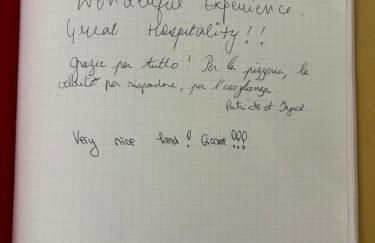 Wonderful Experience.
Great Hospitality!!
Grazie per tutto! Per la pizzeria, la
velocità per rispondere, per l'accoglienza.
Patrick et Ingrid.
Very nice host!